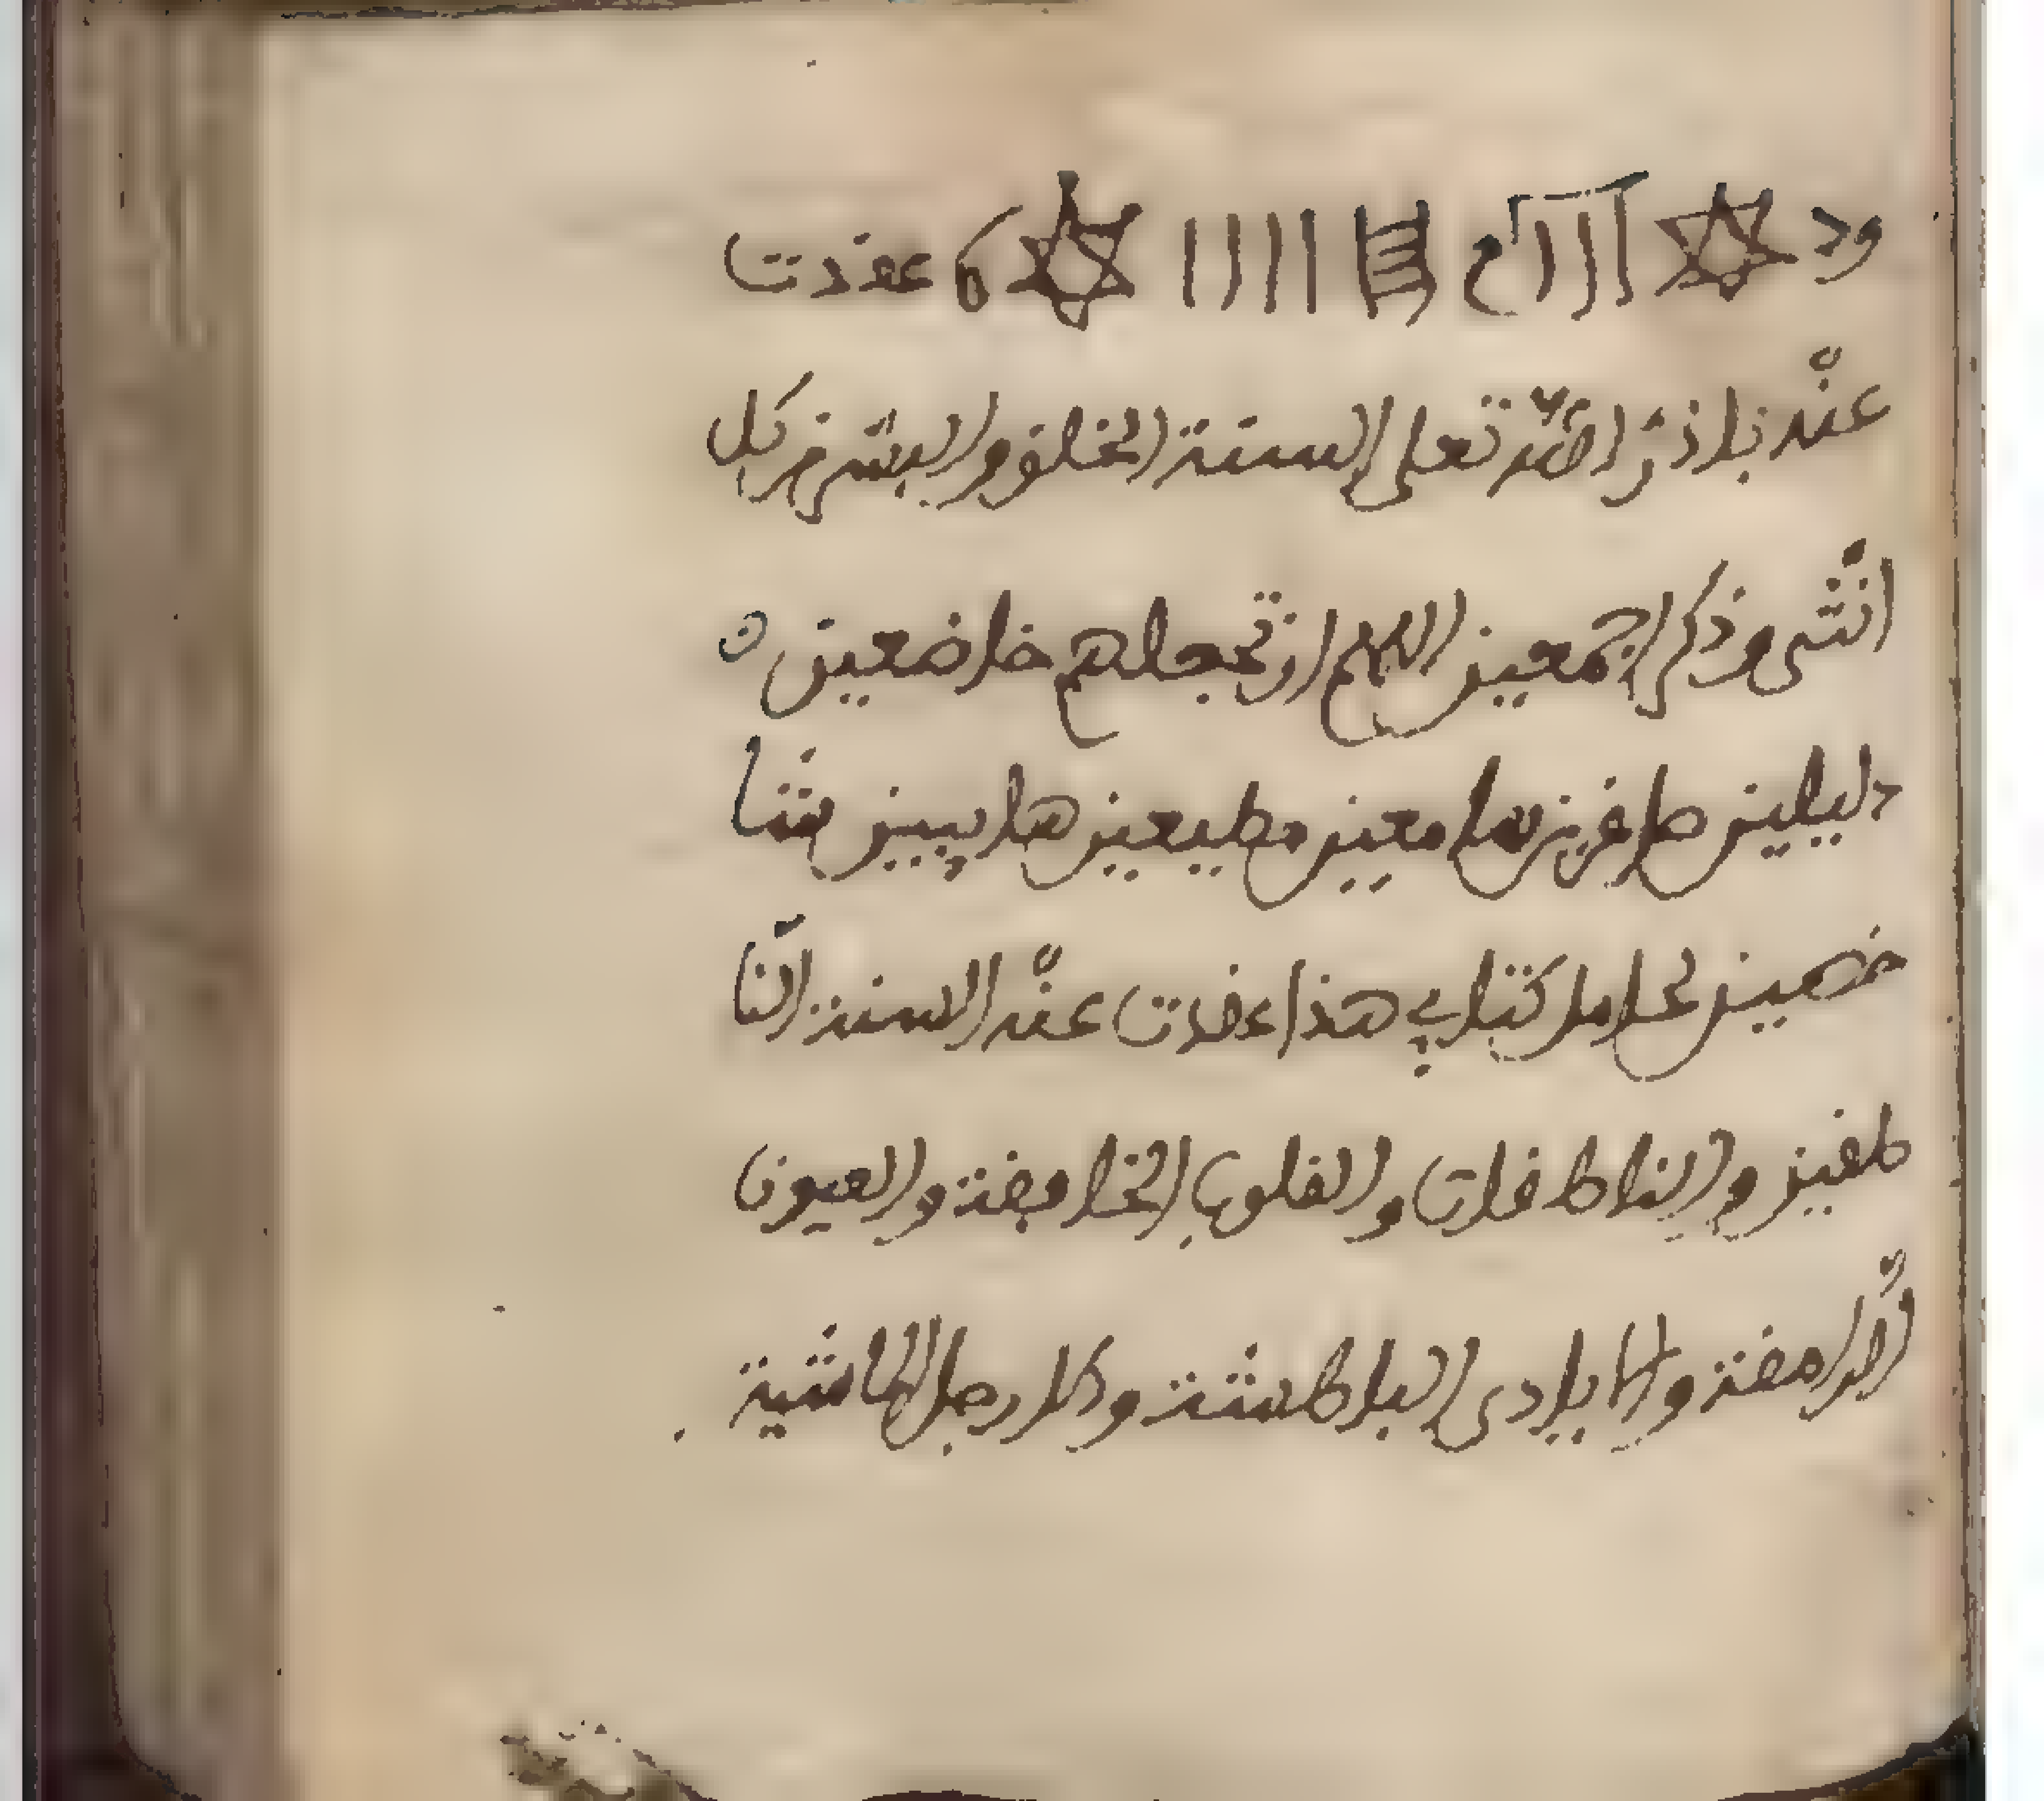 ود ااام اااا ه عقدت
عنه باذن الله تعلى السنة الخلق والبشر من كل
انثى وذكر اجمعين اللهم ان تجعلهم خاضعين
ذليلين صاغرين سامعين مطيعين هايبين شا
خصين لحامل كتابي هذا عقدت عنه السنة النا
طقين والناطقات والقلوب الخافضة والعيون
الرامقة والايادي الباطشة والارجل الماشية